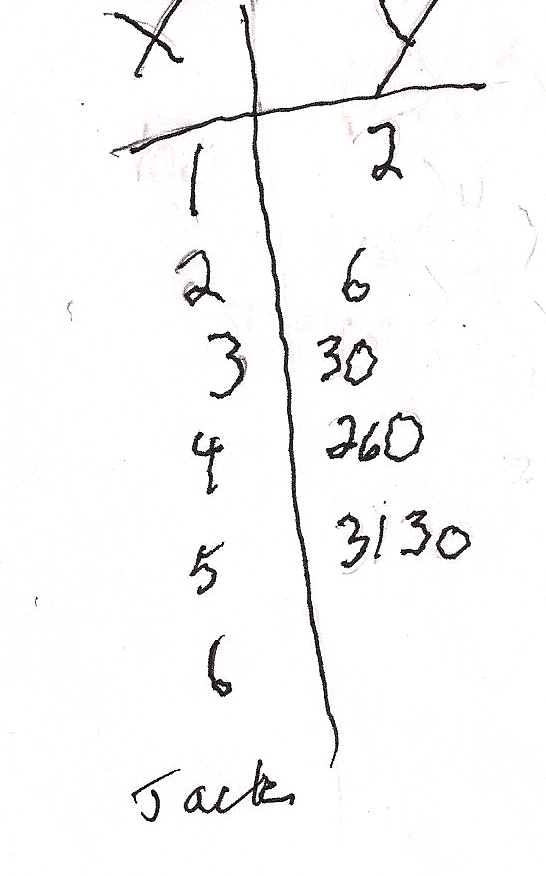 X Y
1 2
2 6
3 30
4 260
5 3130
6
Jack